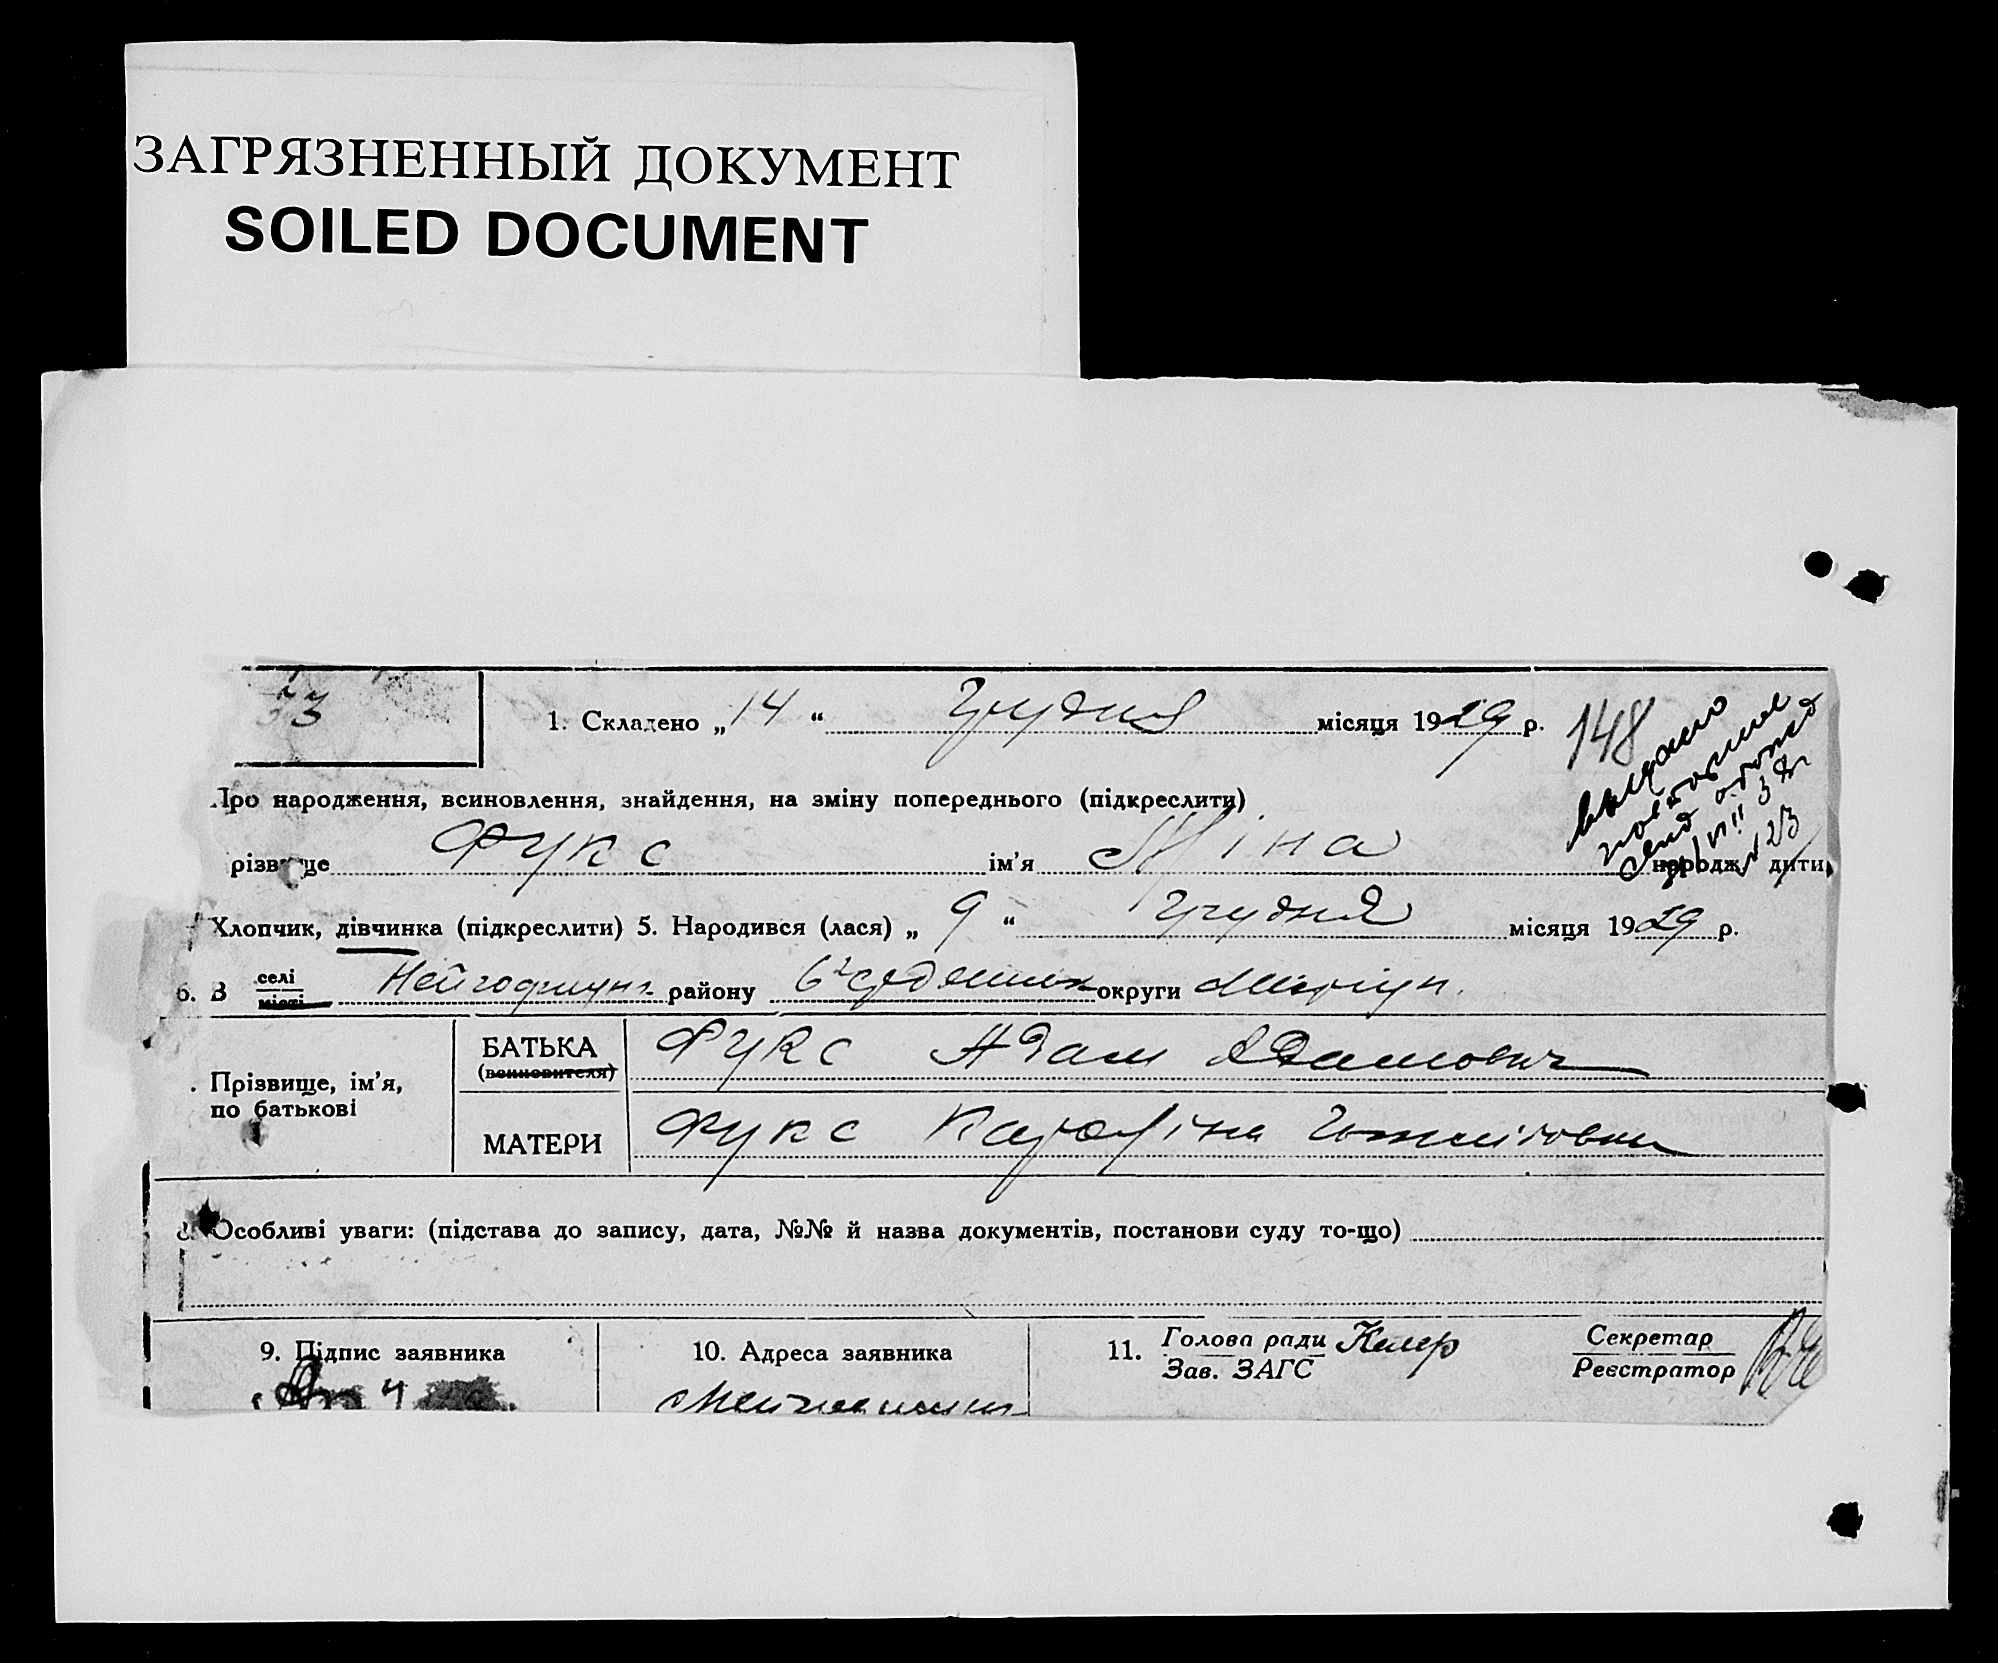 ЗАГРЯЗНЕННЫЙ ДОКУМЕНТ
SOILED DOCUMENT
33
1. Складено „14“ Грудня місяця 1929 р.
148
выдано
повторное
Про народження, всиновлення, знайдення, на зміну попереднього (підкреслити)
різвище Фукс ім'я Міна народж. дити
Хлопчик, дівчинка (підкреслити) 5. Народився (лася) „9“ Грудня місяця 1929 р.
6. В селі місті району округи Маріуп.
Прізвище, ім'я, по батькові
БАТЬКА (всиновителя) Фукс Адам Адамович
МАТЕРИ Фукс Кароліна
Особливі уваги: (підстава до запису, дата, №№ й назва документів, постанови суду то-що)
9. Підпис заявника
10. Адреса заявника
11. Голова ради Келер
Зав. ЗАГС
Секретар
Реєстратор